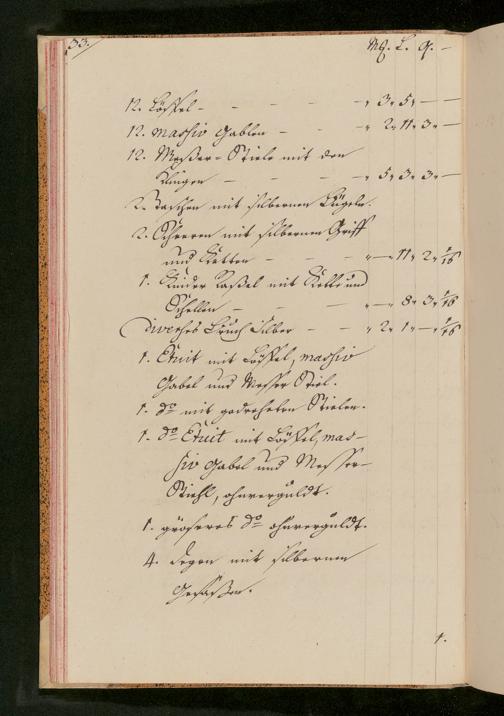 33.
M. L. Q. —
12. Löffel — — — — — „ 3 „ 5 „ — —
12. massiv Gablen — — — „ 2 „ 11 „ 3 „ —
12. Messer-Stiele mit den
Klingen — — — — „ 5 „ 3 „ 3 „ —
2. Taschen mit silbernen Bügeln.
2. Scheeren mit silbernen Griff
und Ketten — — — „ — „ 11 „ 2 „ /16
1. Kinder Raßel mit Kette und
Schellen — — — — „ — „ 8 „ 3 „ /16
Diverses Bruch Silber — — „ 2 „ 1 „ — „ /16
1. Etuit mit Löffel, massiv
Gabel und Messer Stiel.
1. do mit gedreheten Stielen.
1. do Etuit mit Löffel, mas-
siv Gabel und Messer-
Stiehl, ohnverguldt.
1. größeres do ohnverguldt.
4. Degen mit silbernen
Gefäßen.
1.